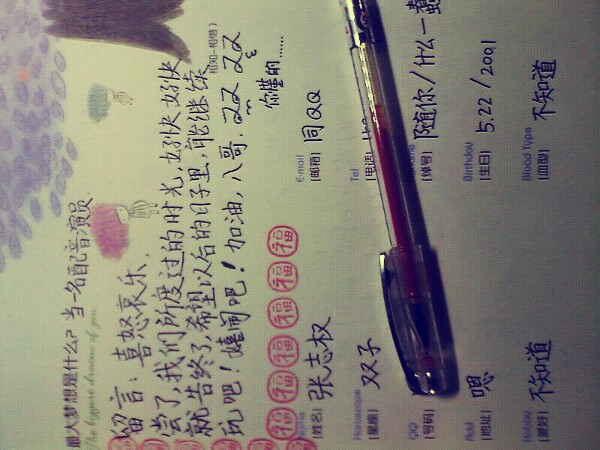 最大梦想是什么? 当一名配音演员
The biggest dream of you
留言: 喜怒哀乐,
尝了,我们所度过的时光,好快好快
就告终了,希望以后的日子里,能继续
(相知~相惜)
玩吧!嬉闹吧!加油,八哥.双双双双
你懂的……
福福福福福福
Name
[姓名] 张志权
E-mail
[邮箱] 同QQ
Horoscope
[星座] 双子
Tel
[电话]
QQ
[号码]
[绰号] 随你/什么一
Add
[地址] 嗯
Birthday
[生日] 5.22 / 2001
Hobbie
[爱好] 不知道
Blood Type
[血型] 不知道